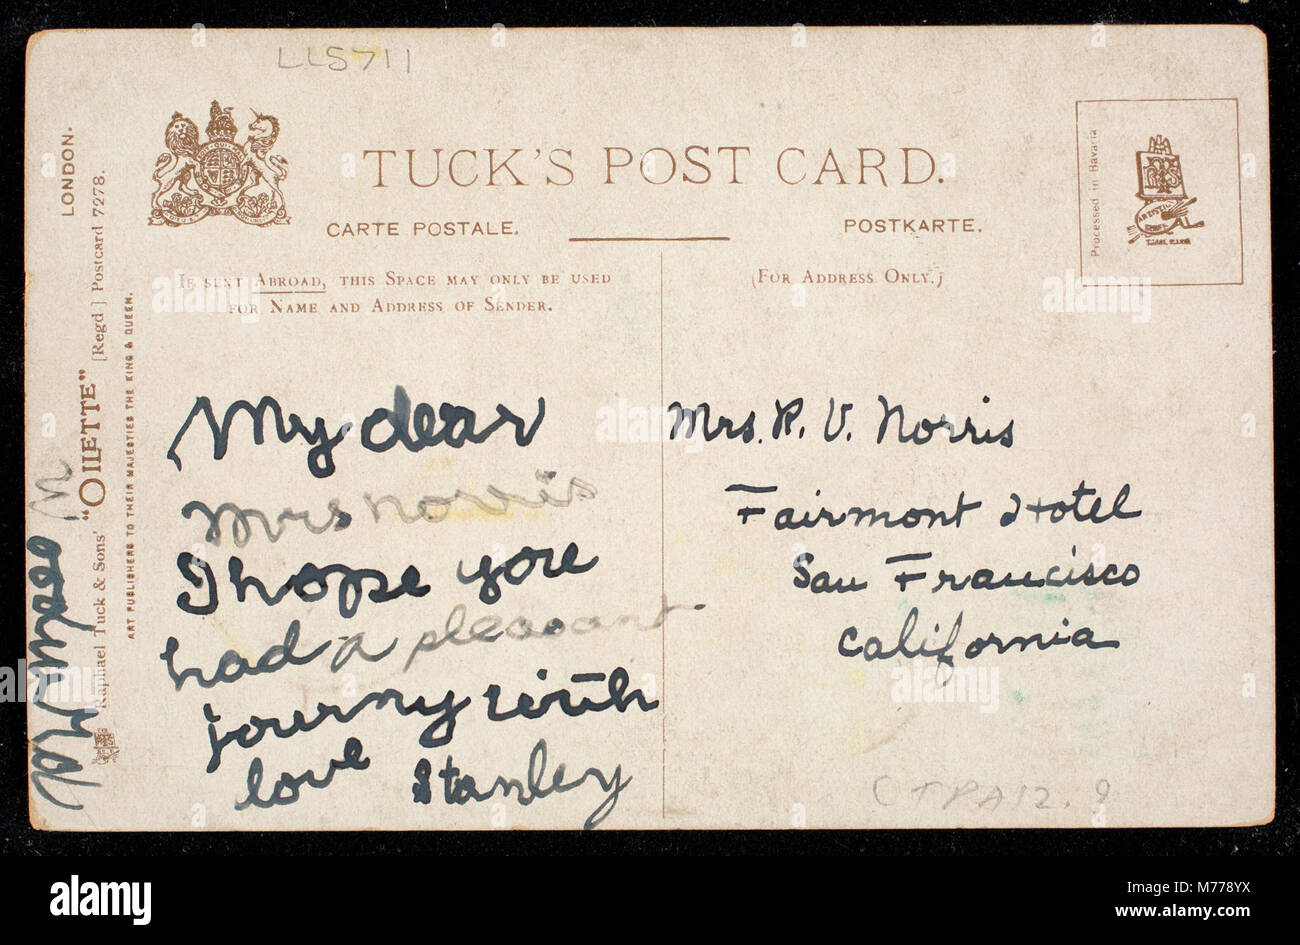 LL5711
LONDON.
TUCK'S POST CARD.
CARTE POSTALE.
POSTKARTE.
IF SENT ABROAD, THIS SPACE MAY ONLY BE USED
FOR NAME AND ADDRESS OF SENDER.
(FOR ADDRESS ONLY.)
Processed in Bavaria
Raphael Tuck & Sons' "OILETTE" [Regd] Postcard 7278.
ART PUBLISHERS TO THEIR MAJESTIES THE KING & QUEEN.
My dear
Mrs norris
I hope you
had a pleasant
journy with
love Stanley
Mrs. R. V. Norris
Fairmont Hotel
San Francisco
California
CTPA12.9
alamy
M778YX
www.alamy.com